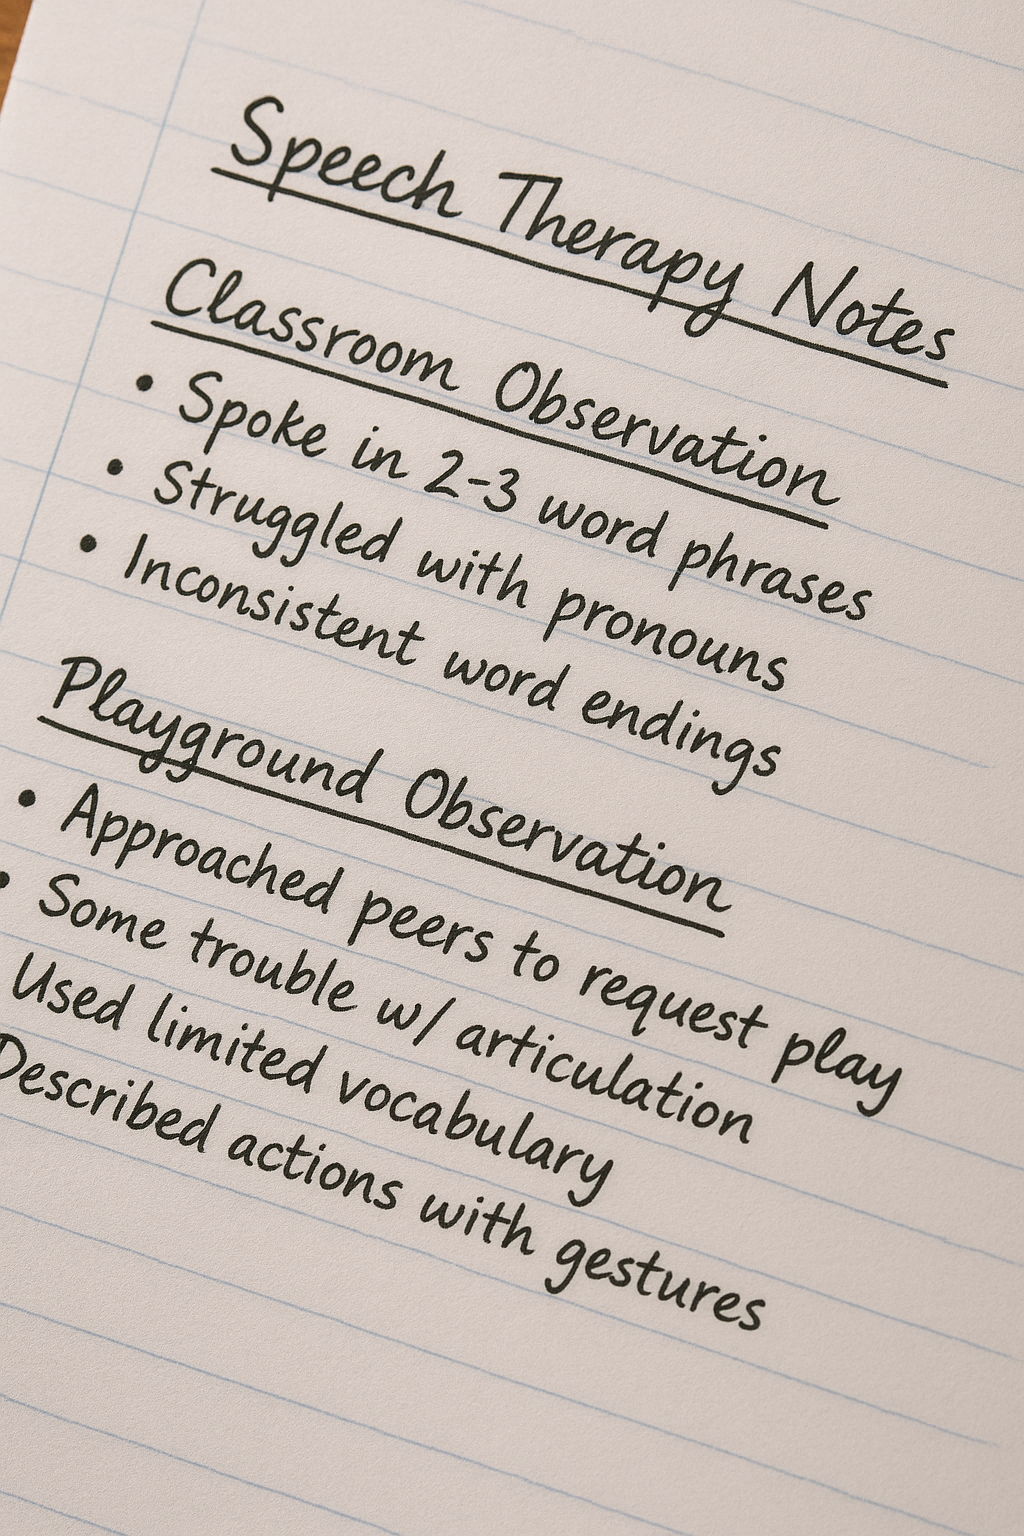 Speech Therapy Notes
Classroom Observation
• Spoke in 2-3 word phrases
• Struggled with pronouns
• Inconsistent word endings
Playground Observation
• Approached peers to request play
• Some trouble w/ articulation
Used limited vocabulary
Described actions with gestures